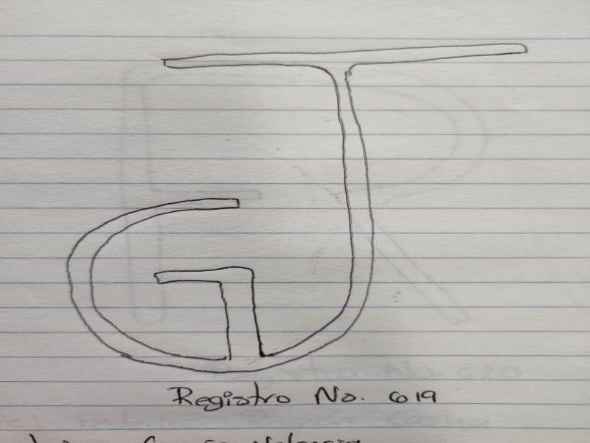 GJ
Registro No. 619